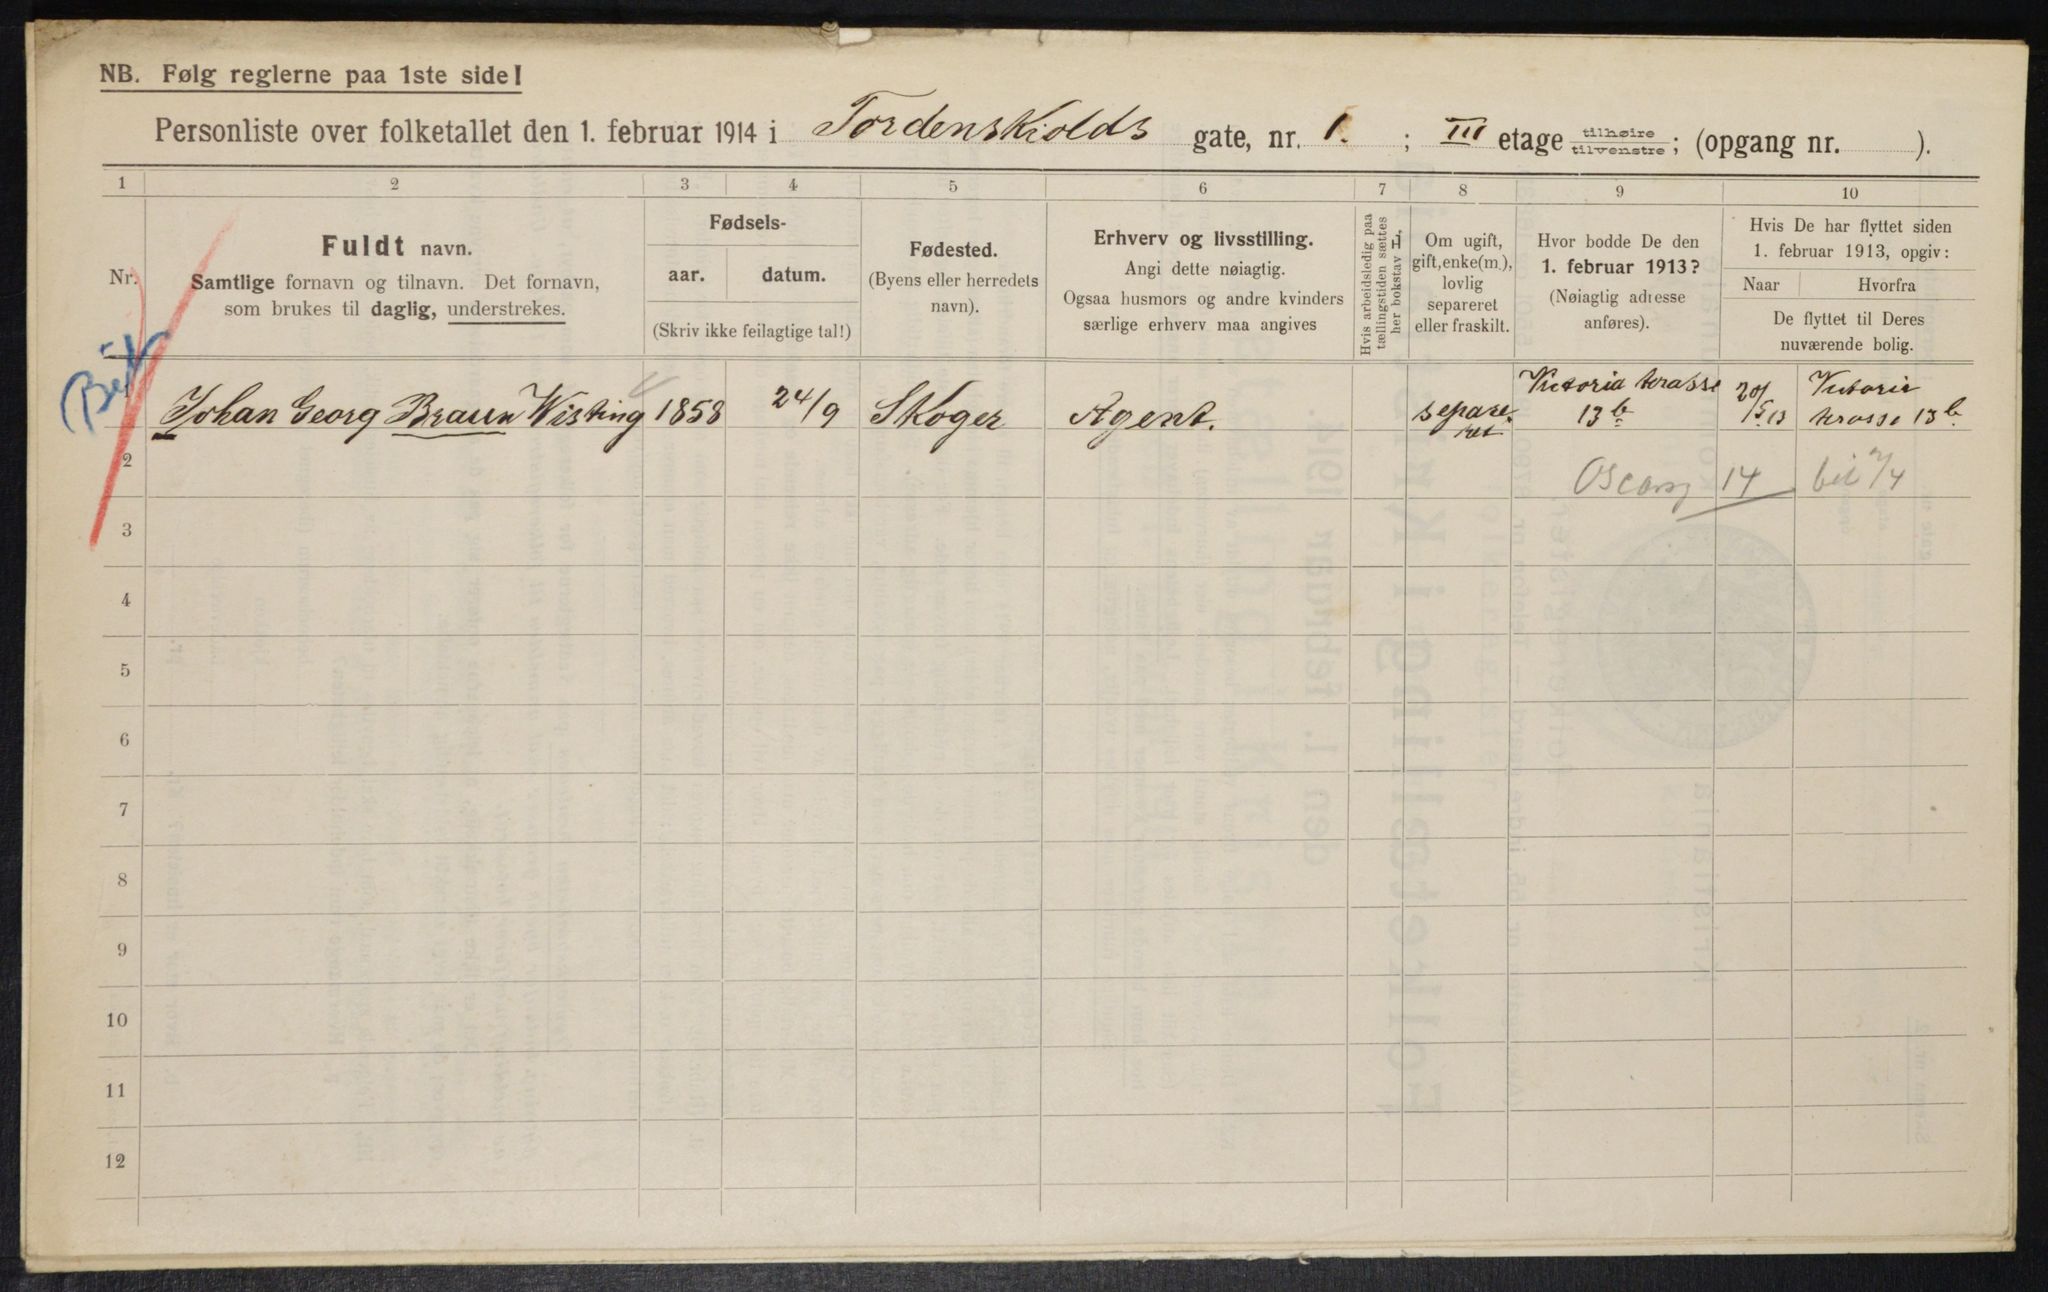 NB. Følg reglerne paa 1ste side!
Personliste over folketallet den 1. februar 1914 i Tordenskiolds gate, nr. 1. ; III etage tilhøire tilvenstre ; (opgang nr. ).
1 2 3 4 5 6 7 8 9 10
Nr.
Fuldt navn.
Samtlige fornavn og tilnavn. Det fornavn,
som brukes til daglig, understrekes.
Fødsels-
aar. datum.
(Skriv ikke feilagtige tal!)
Fødested.
(Byens eller herredets
navn).
Erhverv og livsstilling.
Angi dette nøiagtig.
Ogsaa husmors og andre kvinders
særlige erhverv maa angives
Hvis arbeidsledig paa
tællingstiden sættes
her bokstav L.
Om ugift,
gift, enke(m.),
lovlig
separeret
eller fraskilt.
Hvor bodde De den
1. februar 1913?
(Nøiagtig adresse
anføres).
Hvis De har flyttet siden
1. februar 1913, opgiv:
Naar Hvorfra
De flyttet til Deres
nuværende bolig.
1 Johan Georg Braun Wisting 1858 24/9 Skoger Agent. separe-
ret
Victoria terasse
13b
20/5 13
Victoria
terasse 13b
2 Oscarsg 14
3
4
5
6
7
8
9
10
11
12